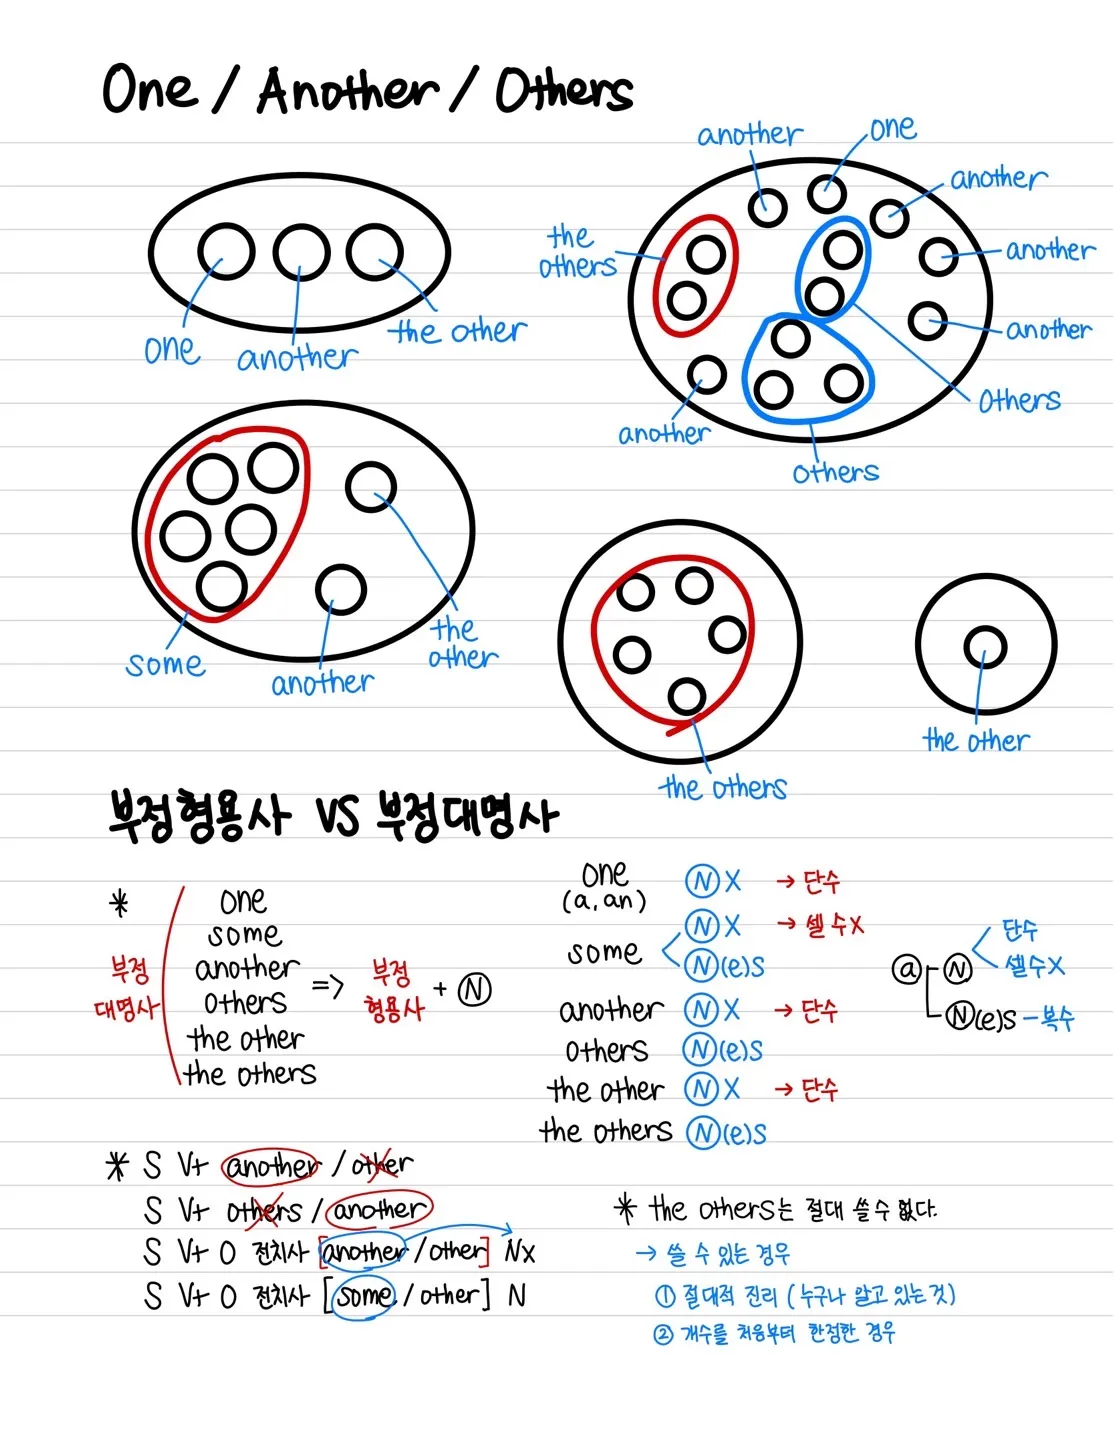 One / Another / Others
one
another
the other
another
one
another
another
another
others
others
another
the
others
some
another
the
other
the others
the other
부정형용사 VS 부정대명사
*
부정
대명사
one
some
another
others
the other
the others
=> 부정
형용사 + N
one
(a, an) N X → 단수
some N X → 셀 수 X
N(e)s
another N X → 단수
others N(e)s
the other N X → 단수
the others N(e)s
a N 단수
셀수X
N(e)s - 복수
* S V+ another / other
S V+ others / another
S V+ O 전치사 [another / other] Nx
S V+ O 전치사 [some / other] N
* the others는 절대 쓸 수 없다.
→ 쓸 수 있는 경우
① 절대적 진리 (누구나 알고 있는 것)
② 개수를 처음부터 한정한 경우